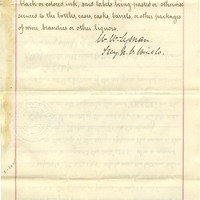 black or colored ink, said labels being pasted or otherwise
secured to the bottles, cases, casks, barrels, or other packages
of wine, brandies or other liquors.
W. W. Lyman